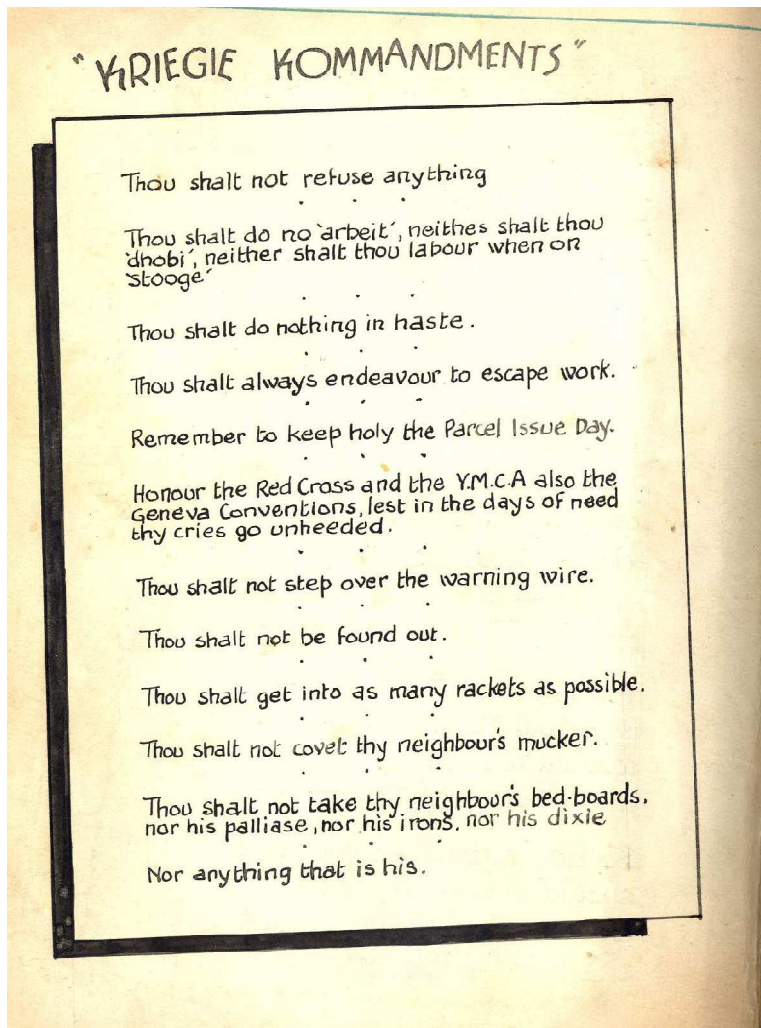 "KRIEGIE KOMMANDMENTS"
Thou shalt not refuse anything
Thou shalt do no 'arbeit', neithes shalt thou
'dhobi', neither shalt thou labour when on
'stooge'
Thou shalt do nothing in haste.
Thou shalt always endeavour to escape work.
Remember to keep holy the Parcel Issue Day.
Honour the Red Cross and the Y.M.C.A also the
Geneva Conventions, lest in the days of need
thy cries go unheeded.
Thou shalt not step over the warning wire.
Thou shalt not be found out.
Thou shall get into as many rackets as possible.
Thou shalt not covet thy neighbour's mucker.
Thou shalt not take thy neighbour's bed-boards,
nor his palliase, nor his irons, nor his dixie
Nor anything that is his.